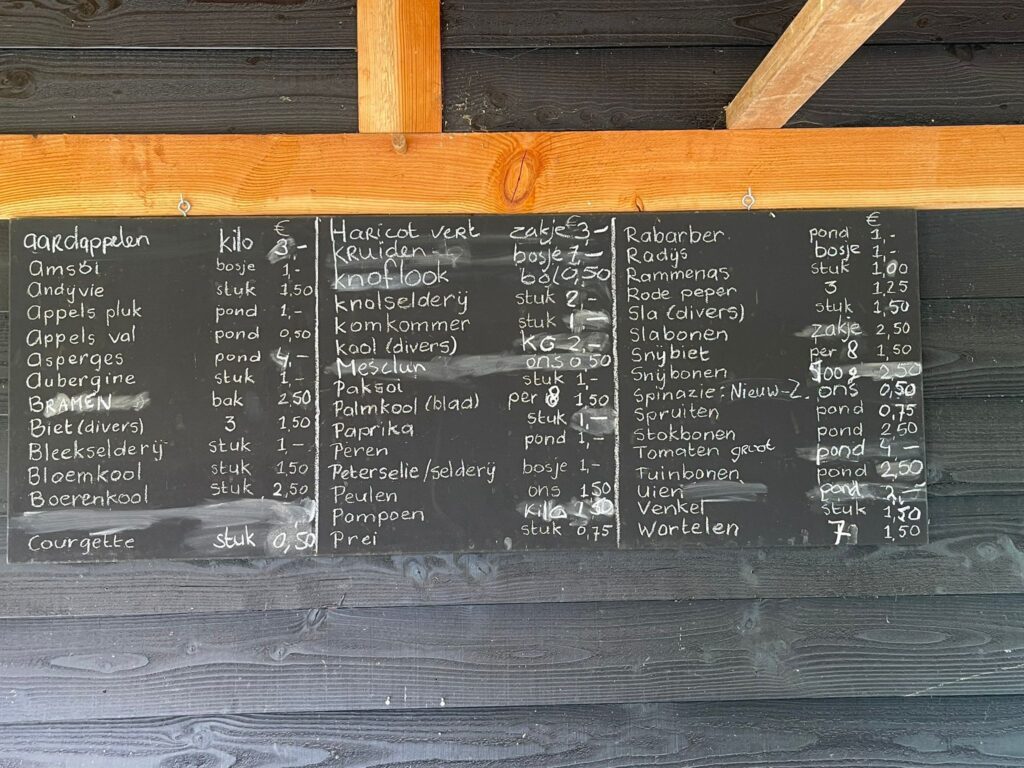 €
aardappelen kilo 3,-
Amsoi bosje 1,-
Andijvie stuk 1,50
Appels pluk pond 1,-
Appels val pond 0,50
Asperges pond 4,-
Aubergine stuk 1,-
BRAMEN bak 2,50
Biet (divers) 3 1,50
Bleekselderij stuk 1,-
Bloemkool stuk 1,50
Boerenkool stuk 2,50
Courgette stuk 0,50
€
Haricot vert zakje 3,-
KRUIDEN bosje 1,-
knoflook bol 0,50
knolselderij stuk 2,-
komkommer stuk 1,-
kool (divers) KG 2,-
Mesclun ons 0,50
Paksoi stuk 1,-
Palmkool (blad) per 8 1,50
Paprika stuk 1,-
Peren pond 1,-
Peterselie/selderij bosje 1,-
Peulen ons 1,50
Pompoen kilo 1,50
Prei stuk 0,75
€
Rabarber pond 1,-
Radijs bosje 1,-
Rammenas stuk 1,00
Rode peper 3 1,25
Sla (divers) stuk 1,50
Slabonen zakje 2,50
Snijbiet per 8 1,50
Snijbonen 500g 2,50
Spinazie: Nieuw-Z. ons 0,50
Spruiten pond 0,75
Stokbonen pond 2,50
Tomaten groot pond 4,-
Tuinbonen pond 2,50
Uien pond 2,-
Venkel stuk 1,50
Wortelen 7 1,50